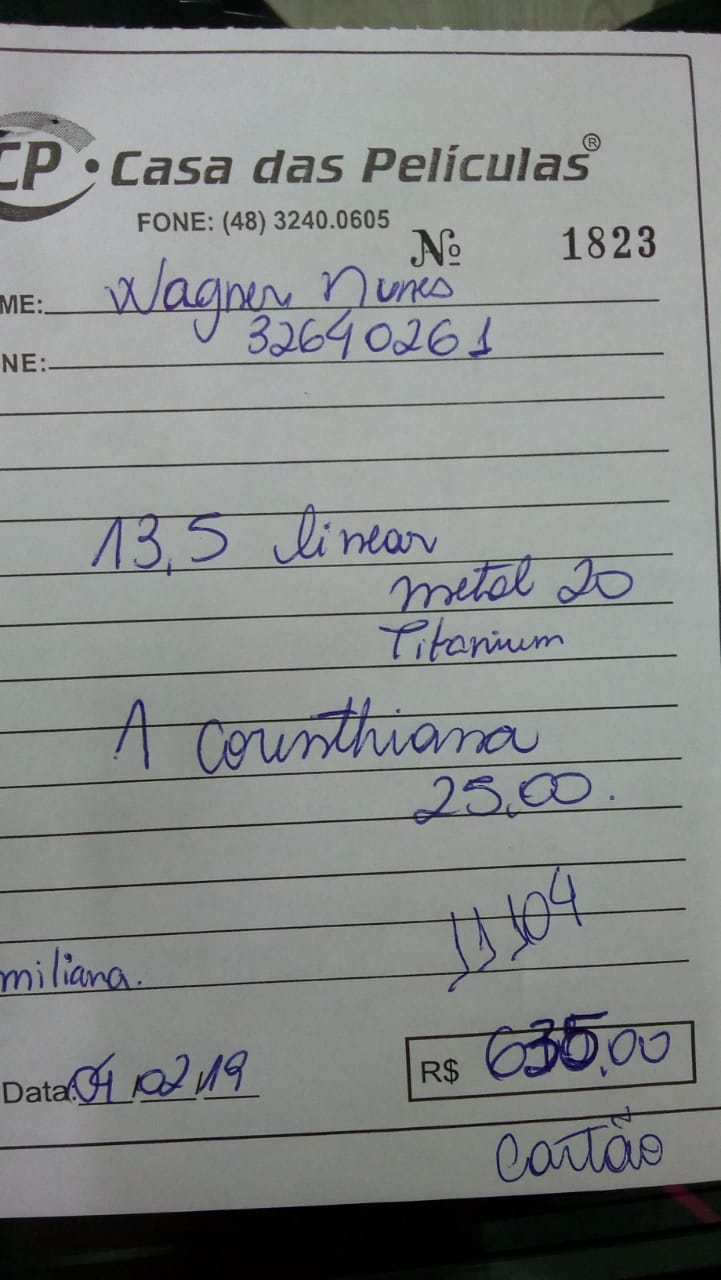 CP • Casa das Películas®
FONE: (48) 3240.0605
Nº 1823
ME: Wagner Nunes
NE: 32640261
13,5 linear
metal 20
Titanium
1 Corinthiana
25,00.
11/04
miliana.
Data: 04/02/19
R$ 635,00
Cartão